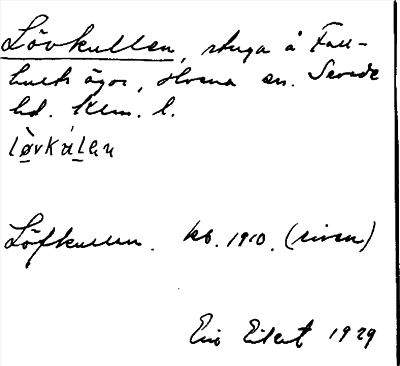 Lövkullen, stuga å Fall-
hults ägor, Hvena sn. Sevede
hd. Klm. l.
løvkulen
Löfkullen. kb. 1910. (riven)
Eric Eilert 1929